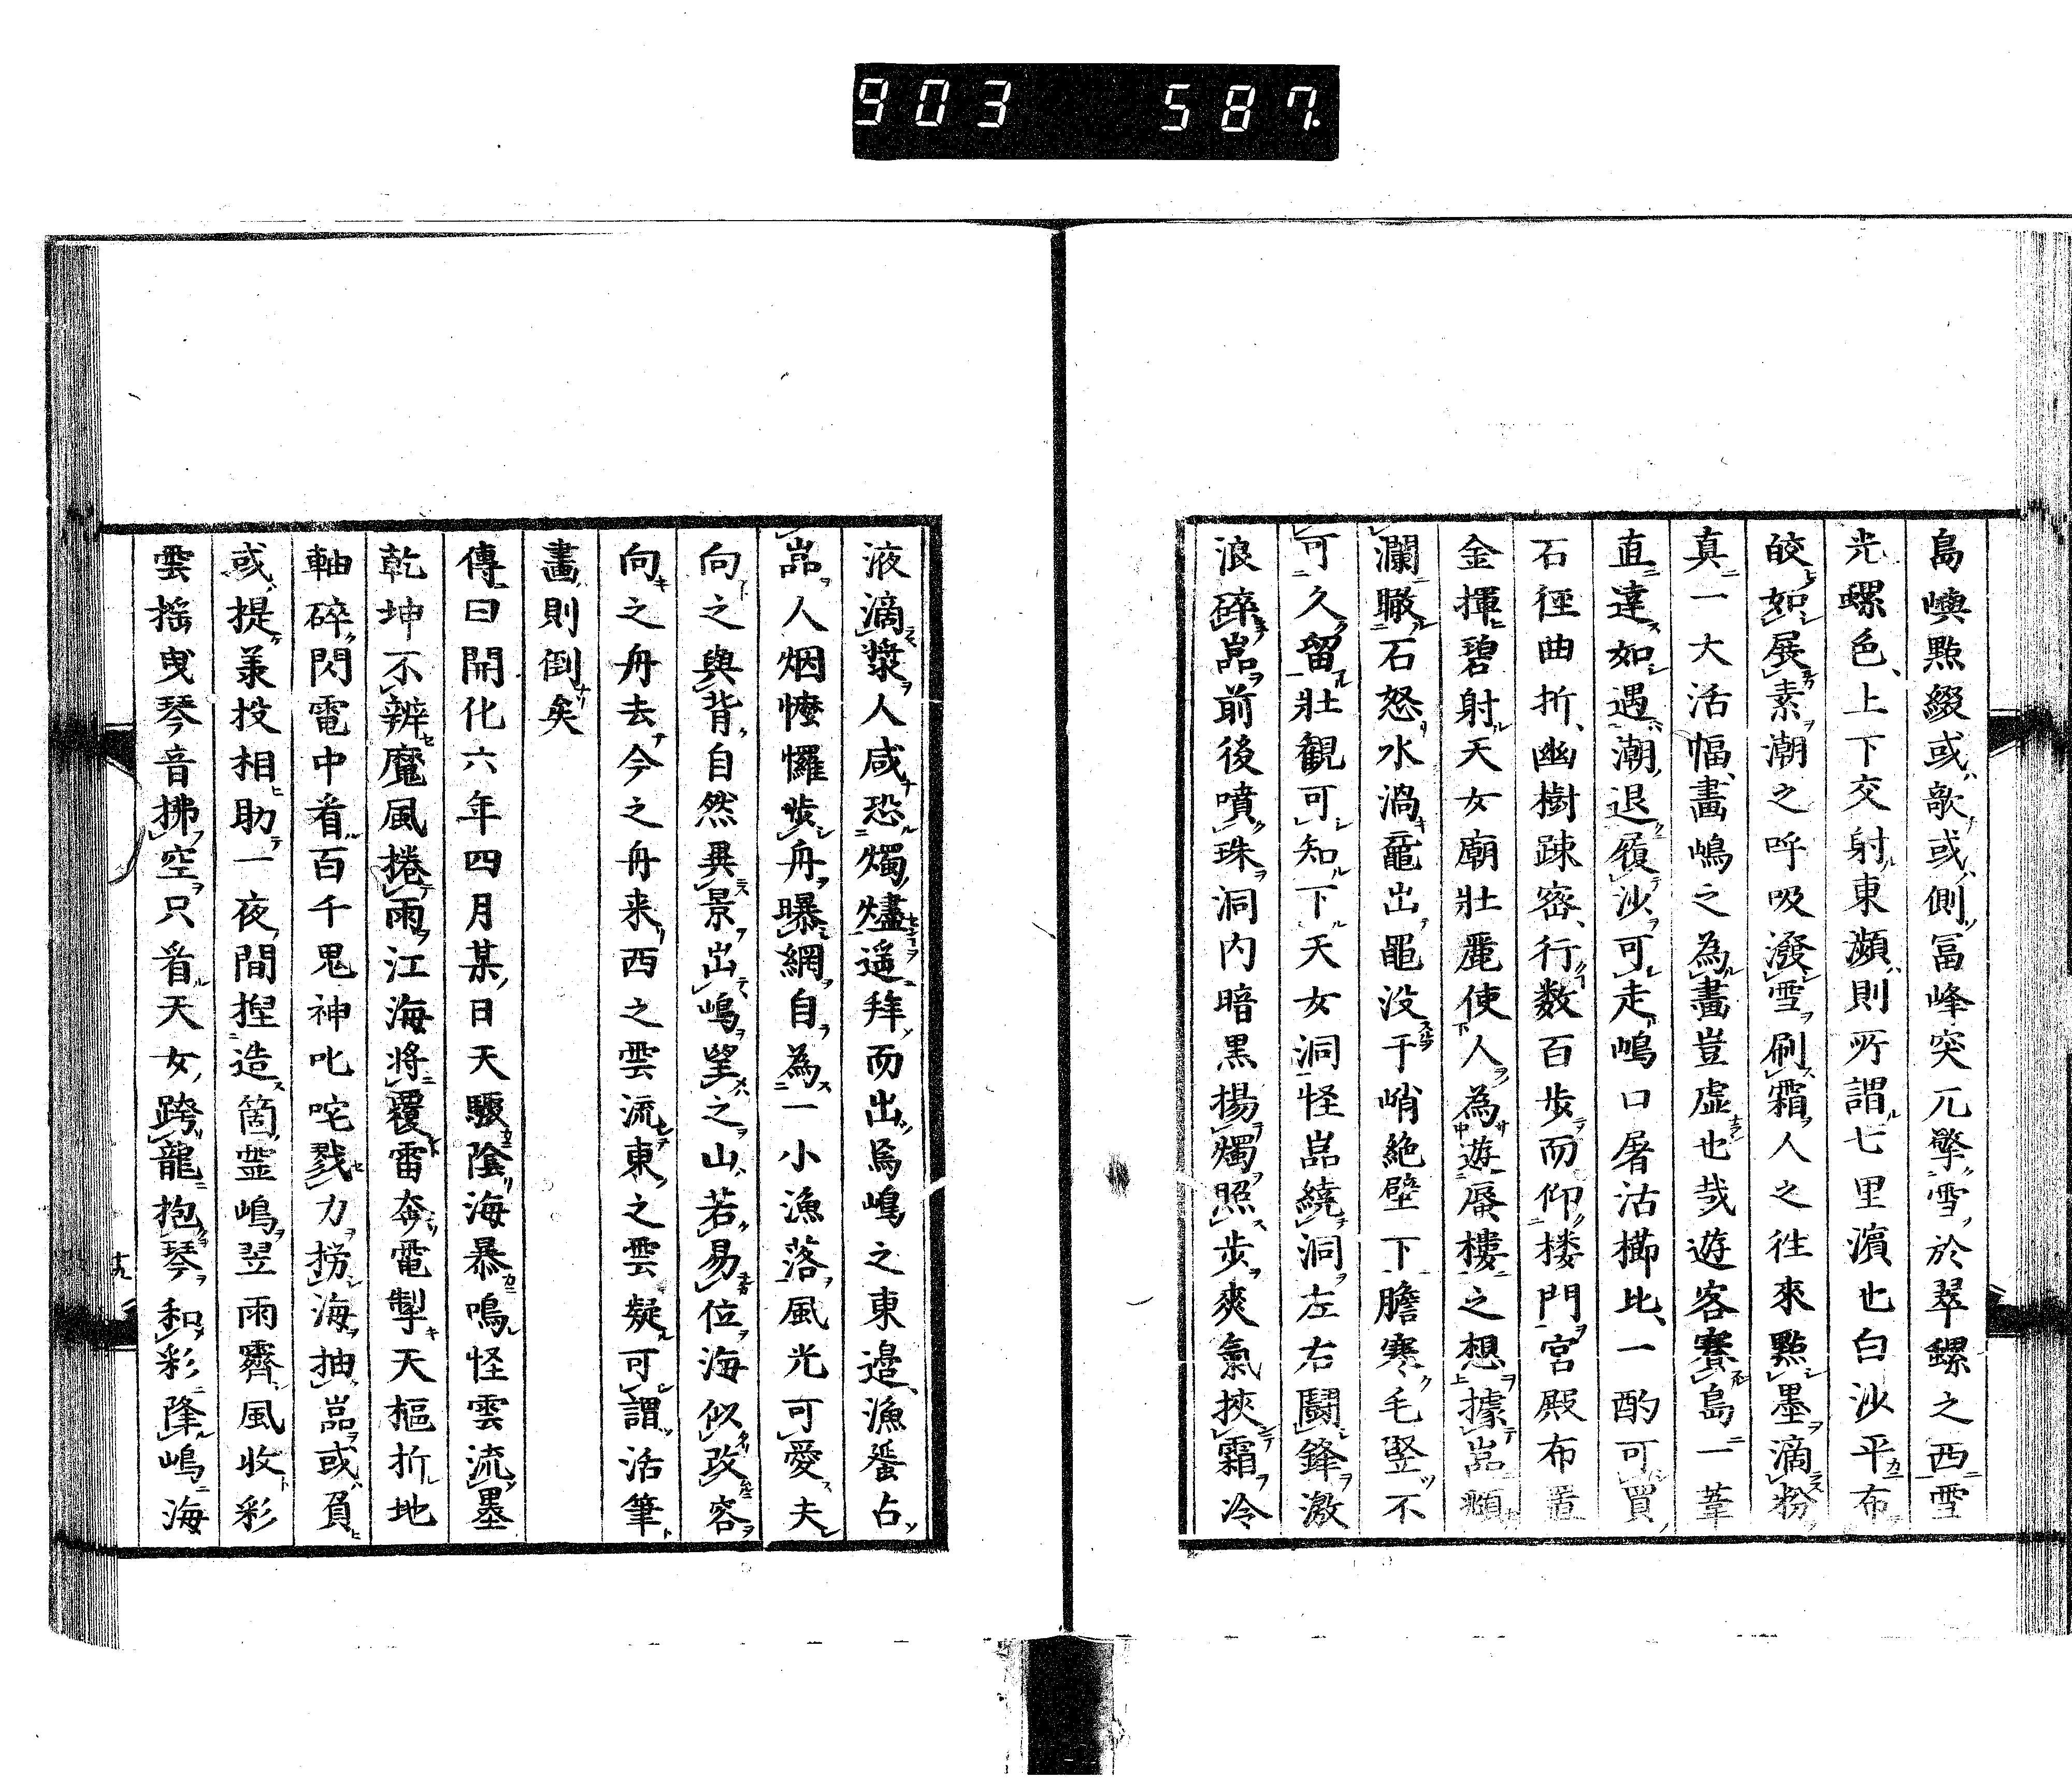 903 587.
島嶼點綴或欹或側冨峰突兀擎雪於翠鏍之西雪
光螺色上下交射東瀕則所謂七里濵也白沙平布
皎如展素潮之呼吸潑雪刷霜人之往來點墨滴粉
真一大活幅畫嶋之為畫豈虚也㢤遊客賽島一葦
直達如遇潮退履沙可走嶋口屠沽櫛比一酌可買
石徑曲折幽樹踈宻行数百歩而仰楼門宮殿布置
金揮碧射天女廟壯麗使人為遊蜃樓之想據嵓頫
瀾瞰石怒水渦鼂出黽没千峭絶壁下膽寒毛竪不
可久留壯観可知下天女洞怪嵓繞洞左右鬪鋒激
浪碎嵓前後噴珠洞内暗黒揚燭照歩爽氣挾霜冷
液滴漿人咸恐燭燼遥拜而出焉嶋之東邉漁蜑占
嵓人烟㦬㦬歩舟曝網自為一小漁落風光可愛夫
向之與背自然異景出嶋望之山若易位海似改容
向之舟去今之舟来西之雲流東之雲凝可謂活筆
畫則倒矣
傳曰開化六年四月某日天驟陰海暴鳴怪雲流墨
乾坤不辨魔風捲雨江海将覆雷奔電掣天樞折地
軸碎閃電中看百千鬼神叱咤戮力搒海抽嵓或負
或提羕投相助一夜間揑造箇霊嶋翌雨霽風收彩
雲揺曳琴音拂空只看天女跨龍抱琴和彩降嶋海
十九